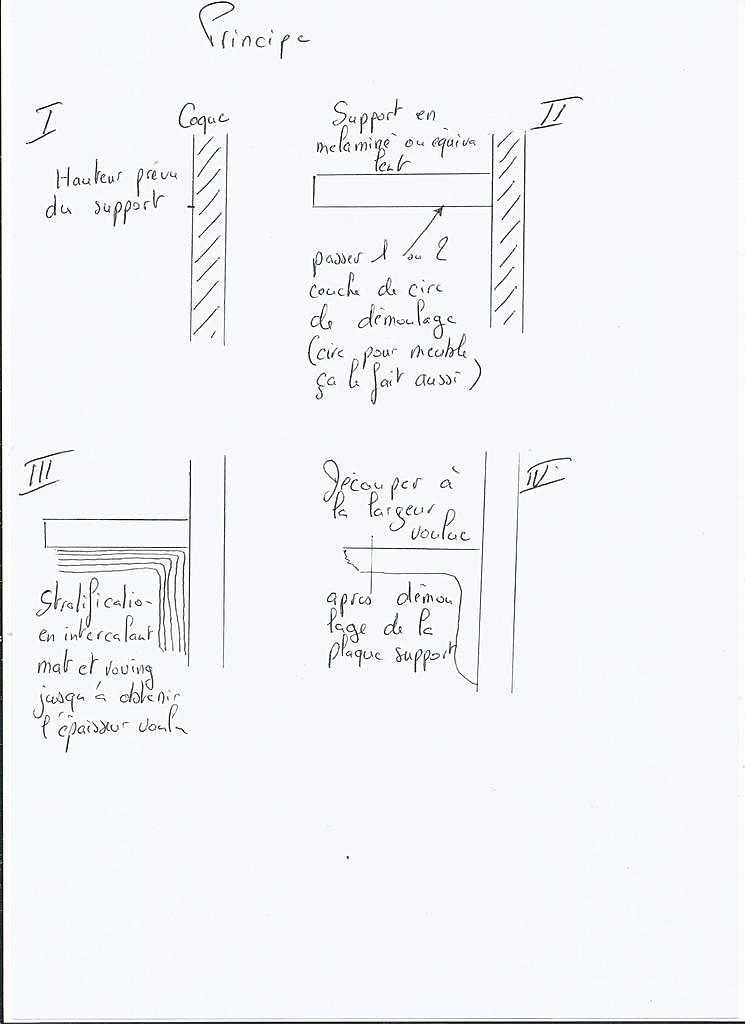 Principe
I
Coque
Hauteur prévu
du support
II
Support en
melaminé ou équiva
lent
passer 1 ou 2
couche de cire
de démoulage
(cire pour meuble
ça le fait aussi)
III
Stratificatio-
en intercalant
mat et roving
jusqu'à obtenir
l'épaisseur voulu
IV
Découper à
la largeur
voulue
apres démou
lage de la
plaque support